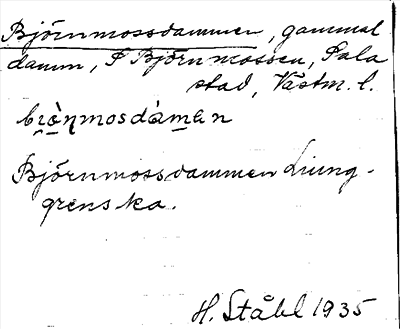 Björnmossdammen, gammal
damm, I Björnmossen, Sala
stad, Västm. l.
bi̯ὰn̥mosdàmɘn
Björnmossdammen Liung-
grenska.
H. Ståhl 1935